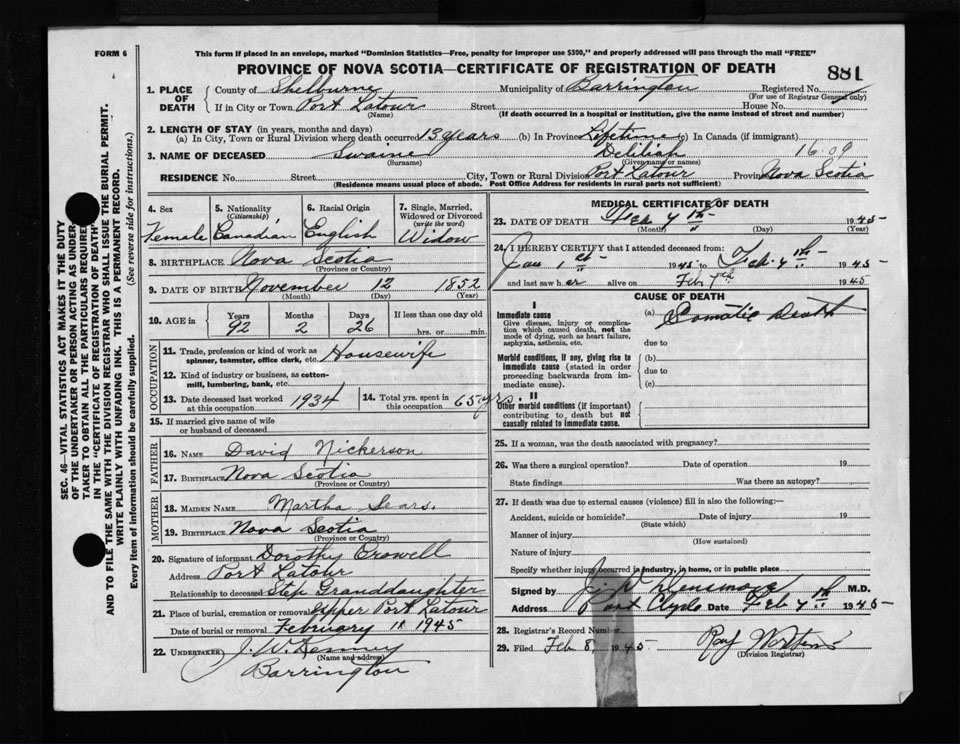 FORM 6
This form if placed in an envelope, marked "Dominion Statistics—Free, penalty for improper use $300," and properly addressed will pass through the mail "FREE"
PROVINCE OF NOVA SCOTIA—CERTIFICATE OF REGISTRATION OF DEATH
881
1. PLACE OF DEATH
County of Shelburne Municipality of Barrington Registered No.
(For use of Registrar General only)
If in City or Town Port Latour Street House No.
(Name) (If death occurred in a hospital or institution, give the name instead of street and number)
2. LENGTH OF STAY (in years, months and days)
(a) In City, Town or Rural Division where death occurred 13 years (b) In Province Lifetime (c) In Canada (if immigrant)
3. NAME OF DECEASED Swaine Delilah 16.09
(Surname) (Given name or names)
RESIDENCE No. Street City, Town or Rural Division Port Latour Province Nova Scotia
(Residence means usual place of abode. Post Office Address for residents in rural parts not sufficient)
4. Sex Female
5. Nationality (Citizenship) Canadian
6. Racial Origin English
7. Single, Married, Widowed or Divorced (write the word) Widow
8. BIRTHPLACE Nova Scotia
(Province or Country)
9. DATE OF BIRTH November 12 1852
(Month) (Day) (Year)
10. AGE in Years Months Days If less than one day old
92 2 26 hrs. or min.
OCCUPATION
11. Trade, profession or kind of work as spinner, teamster, office clerk, etc. Housewife
12. Kind of industry or business, as cotton-mill, lumbering, bank, etc.
13. Date deceased last worked at this occupation 1934
14. Total yrs. spent in this occupation 65 yrs.
15. If married give name of wife or husband of deceased
FATHER
16. NAME David Nickerson
17. BIRTHPLACE Nova Scotia
(Province or Country)
MOTHER
18. MAIDEN NAME Martha Sears.
19. BIRTHPLACE Nova Scotia
(Province or Country)
20. Signature of informant Dorothy Crowell
Address Port Latour
Relationship to deceased Step Granddaughter
21. Place of burial, cremation or removal Upper Port Latour
Date of burial or removal February 11 1945
22. UNDERTAKER J. W. Kenney
(Name and address)
Barrington
MEDICAL CERTIFICATE OF DEATH
23. DATE OF DEATH Feb 7th 1945
(Month) (Day) (Year)
24. I HEREBY CERTIFY that I attended deceased from:
Jan 1st 1945 to Feb 7th 1945
and last saw her alive on Feb 7th 1945
CAUSE OF DEATH
I
Immediate cause
Give disease, injury or complication which caused death, not the mode of dying, such as heart failure, asphyxia, asthenia, etc.
(a) Somatic Death
due to
Morbid conditions, if any, giving rise to immediate cause (stated in order proceeding backwards from immediate cause).
(b)
due to
(c)
II
Other morbid conditions (if important) contributing to death but not causally related to immediate cause.
25. If a woman, was the death associated with pregnancy?
26. Was there a surgical operation? Date of operation 19
State findings Was there an autopsy?
27. If death was due to external causes (violence) fill in also the following:—
Accident, suicide or homicide? Date of injury 19
(State which)
Manner of injury
(How sustained)
Nature of injury
Specify whether injury occurred in industry, in home, or in public place
Signed by Densmore M.D.
Address Port Clyde Date Feb 7th 1945
28. Registrar's Record Number
29. Filed Feb 8, 1945 Ray
(Division Registrar)
SEC. 46—VITAL STATISTICS ACT MAKES IT THE DUTY
OF THE UNDERTAKER OR PERSON ACTING AS UNDERTAKER TO OBTAIN ALL THE PARTICULARS REQUIRED
IN THE "CERTIFICATE OF REGISTRATION OF DEATH"
AND TO FILE THE SAME WITH THE DIVISION REGISTRAR WHO SHALL ISSUE THE BURIAL PERMIT.
WRITE PLAINLY WITH UNFADING INK. THIS IS A PERMANENT RECORD.
Every item of information should be carefully supplied. (See reverse side for instructions.)